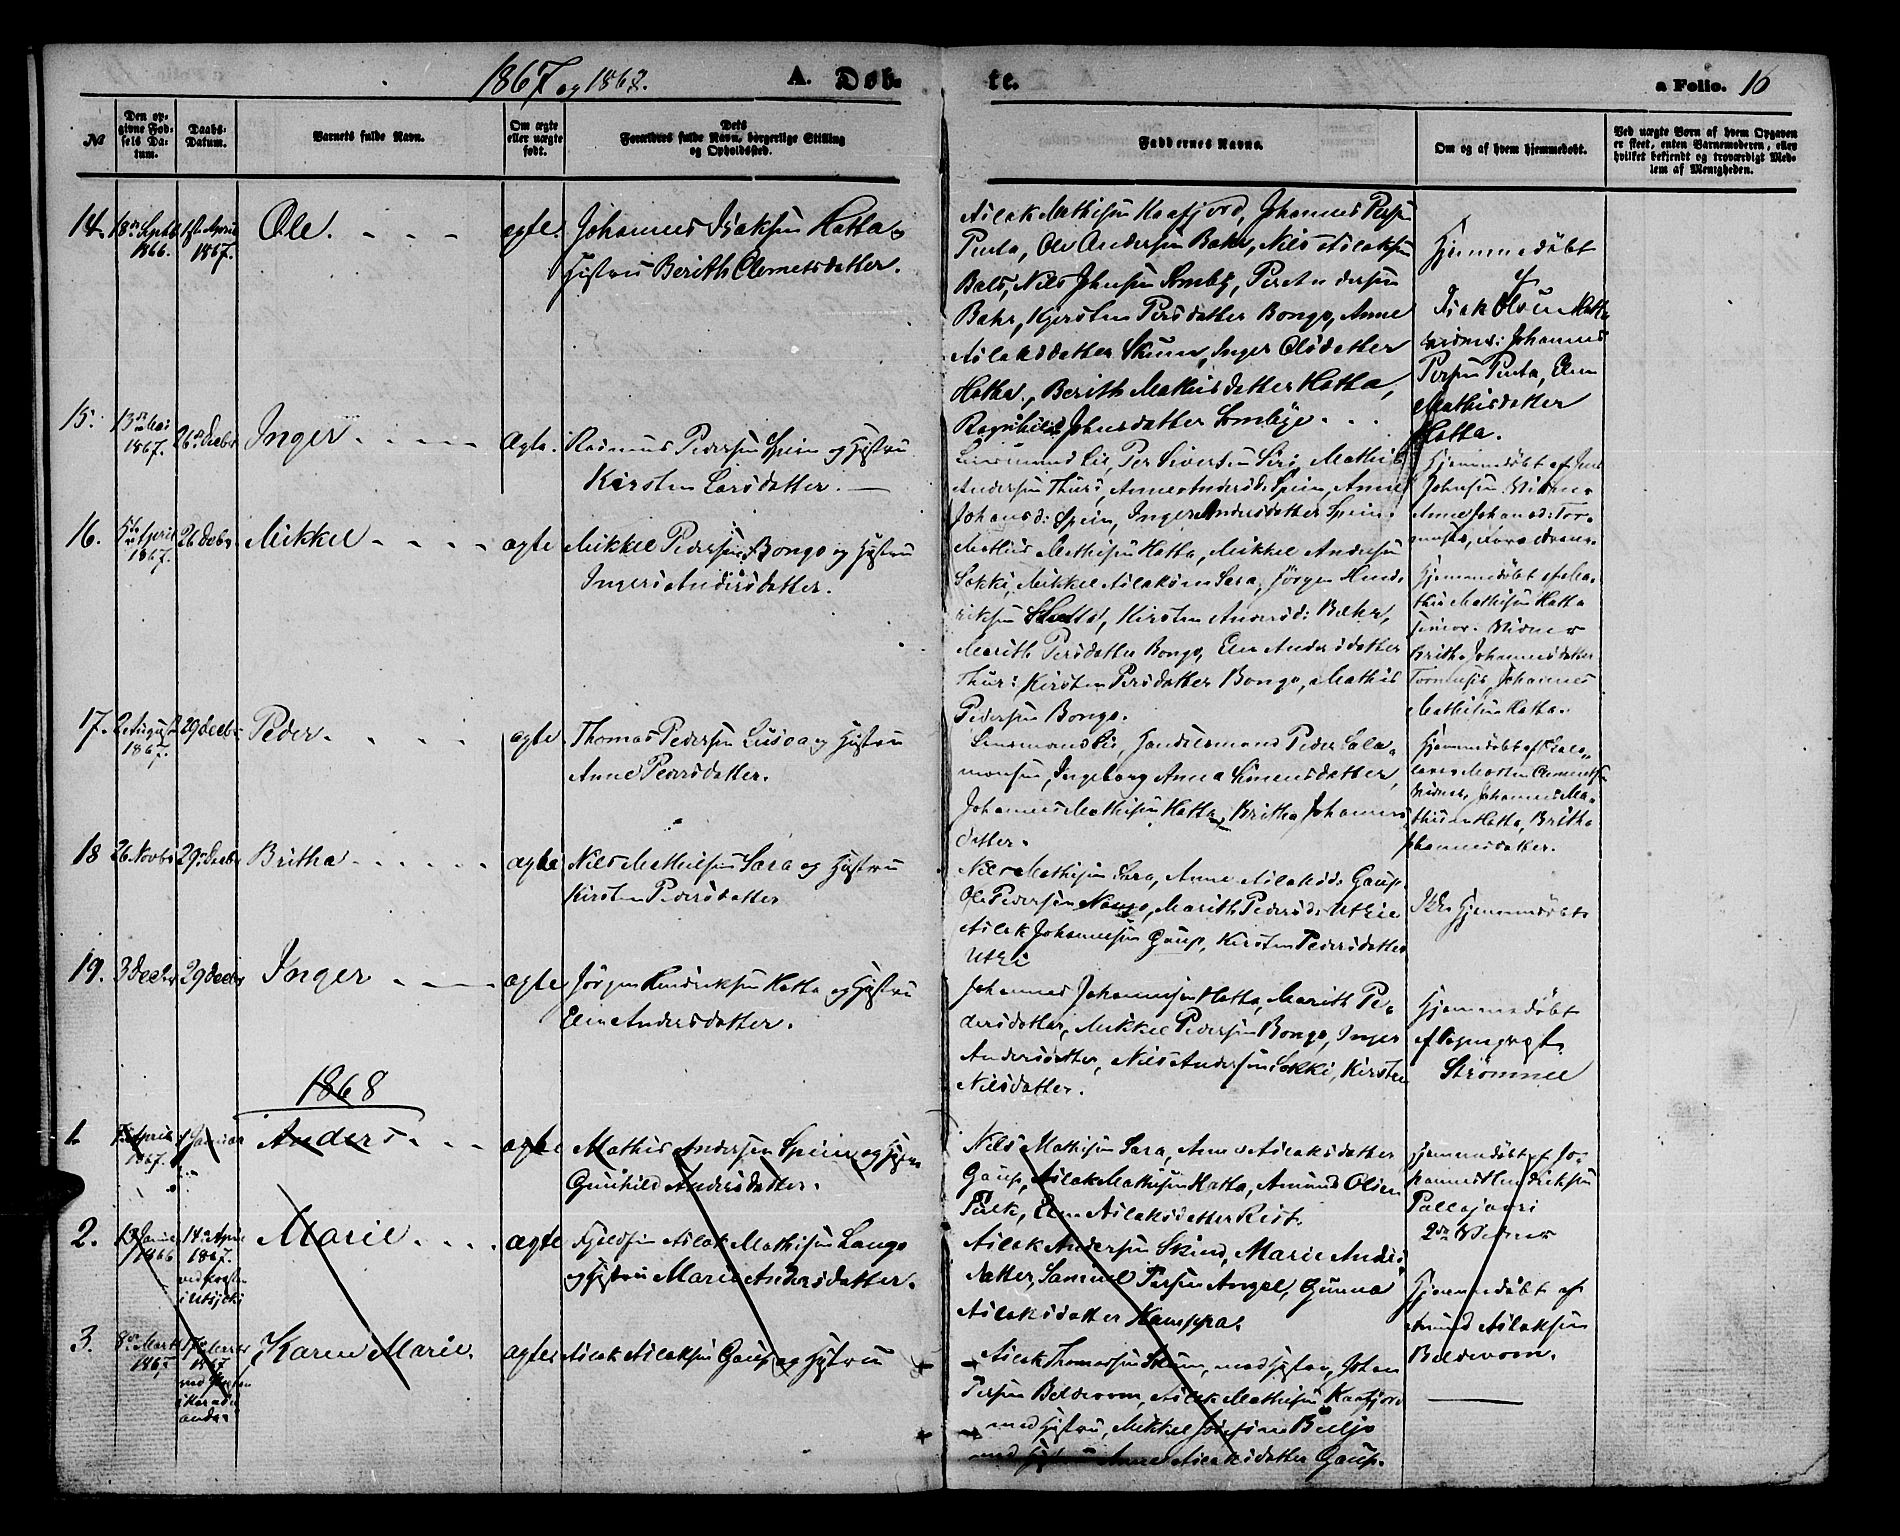 1867 og 1868. A. Døb-
te.
a Folio. 16
No
Den op-
givne Fød-
sels Da-
tum.
Daabs-
Datum.
Barnets fulde Navn.
Om ægte
eller uægte
født.
Dets
Forældres fulde Navn, borgerlige Stilling
og Opholdssted.
Faddernes Navne.
Om og af hvem hjemmedøbt.
Ved uægte Børn af hvem Opgaven
er skeet, enten Barnemoderen, eller
hvilket bekjendt og troværdigt Med-
lem af Menigheden.
14.
18de Septbr
1866.
April
1867.
Ole.
ægte.
Johannes Isaksen Hætta og
Hustru Berith Clemetsdatter.
Aslak Mathisen Kaafjord, Johannes Persen
Penta, Ole Andersen Bahr, Nils Aslaksen
Bals, Nils Johnsen Somby, Per Andersen
Bahr, Kjersten Persdatter Bongo, Anne
Aslaksdatter Skum, Inger Olsdatter
Hætta, Berith Mathisdatter Hætta,
Ragnhild Johnsdatter Sombye.
Hjemmedøbt
af
Isak Olsen Hætta
vidner: Johannes
Persen Penta, Elen
Mathisdatter
Hætta.
15.
13de Mai
1867.
26de Decbr
Inger
Ægte.
Rasmus Pedersen Spein og Hustru
Kirsten Larsdatter.
Lensmand Lie, Per Siversen Siri, Mathis
Andersen Thuri, Anne Andersd: Spein, Anne
Johansd: Spein, Inger Andersdatter Spein.
Hjemmedøbt af
Johnsen Vidner
Anne Johansd: Tor-
16.
5te April
1867.
26 Decbr
Mikkel
ægte
Mikkel Pedersen Bongo og Hustru
Inger Andersdatter.
Mathis Mathisen Hætta, Mikkel Andersen
Sokki, Mikkel Aslaksen Sara, Jørgen Hend-
riksen Hætta, Kirsten Andersd: Bæhr,
Marith Persdatter Bongo, Elen Andersdatter
Thuri Kirsten Persdatter Bongo, Mathis
Pedersen Bongo.
Hjemmedøbt af Ma-
this Mathisen Hætta
senior. Vidner
Britha Johannesdatter
Tornensis, Johannes
Mathisen Hætta.
17.
2 August
1867.
29 Decbr
Peder
ægte
Thomas Pedersen og Hustru
Anne Pedersdatter.
Lensmand Lie, Handelsmand Peder Salo-
monsen, Ingeborg Anna Simensdatter,
Johannes Mathisen Hætta, Britha Johannes-
datter.
Hjemmedøbt af
Morten Clemetsen
Vidner, Johannes Ma-
thisen Hætta, Britha
Johannesdatter.
18
26 Novbr
29de Decbr
Britha
ægte
Nils Mathisen Sara og Hustru
Kirsten Pedersdatter
Nils Mathisen Sara, Anne Aslaksd: Gaup.
Ole Pedersen Nango, Marith Pedersd: Utzie
Aslak Johannesen Gaup, Kirsten Pedersdatter
Utzi
Ikke Hjemmedøbt
19.
3 Decbr
29 Decbr
Inger
ægte
Jørgen Hendriksen Hætta og Hustru
Elen Andersdatter.
Johannes Johannesen Hætta, Marith Pe-
dersdatter, Mikkel Pedersen Bongo, Inger
Andersdatter, Nils Andersen Sokki, Kirsten
Nilsdatter.
Hjemmedøbt
af Sognepræst
Strømmel
1868
1.
April
1867.
1 Januar
Anders
ægte
Mathis Andersen Spein og Hustru
Gunhild Andersdatter.
Nils Mathisen Sara, Anne Aslaksdatter
Gaup, Aslak Mathisen Hætta, Amund Olsen
Pulk, Elen Aslaksdatter Rist.
Hjemmedøbt af Jo-
hannes Hendriksen
Pallojærvi
2de Vidner
2.
1866
14de April
1867.
i Utsjoki
Marie
ægte
Fjeldfin Aslak Mathisen Lango
og Hustru Marie Andersdatter.
Aslak Andersen Skind, Marie Anders-
datter, Samuel Persen Angel, Gunna
Aslaksdatter Kamppa.
Hjemmedøbt af
Amund Aslaksen
Beldevom.
3.
8de Marts
1867
1867
Karen Marie.
ægte
Aslak Aslaksen Gaup og Hustru
Aslak Thomassen Skum, med Hustru, Johan
Persen Beldevom, Aslak Mathisen Kaafjord
med Hustru, Mikkel Josefsen Buljo
med Hustru Anne Aslaksdatter Gaup.